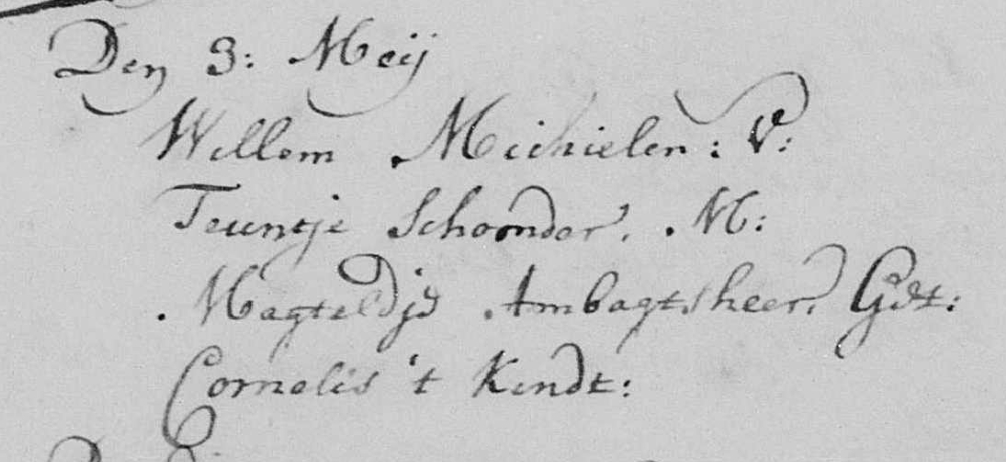 Den 3: Meij
Willem Michielen: V:
Teuntje Schoonder. M:
Magteldje Ambagtsheer. Get:
Cornelis 't Kindt: